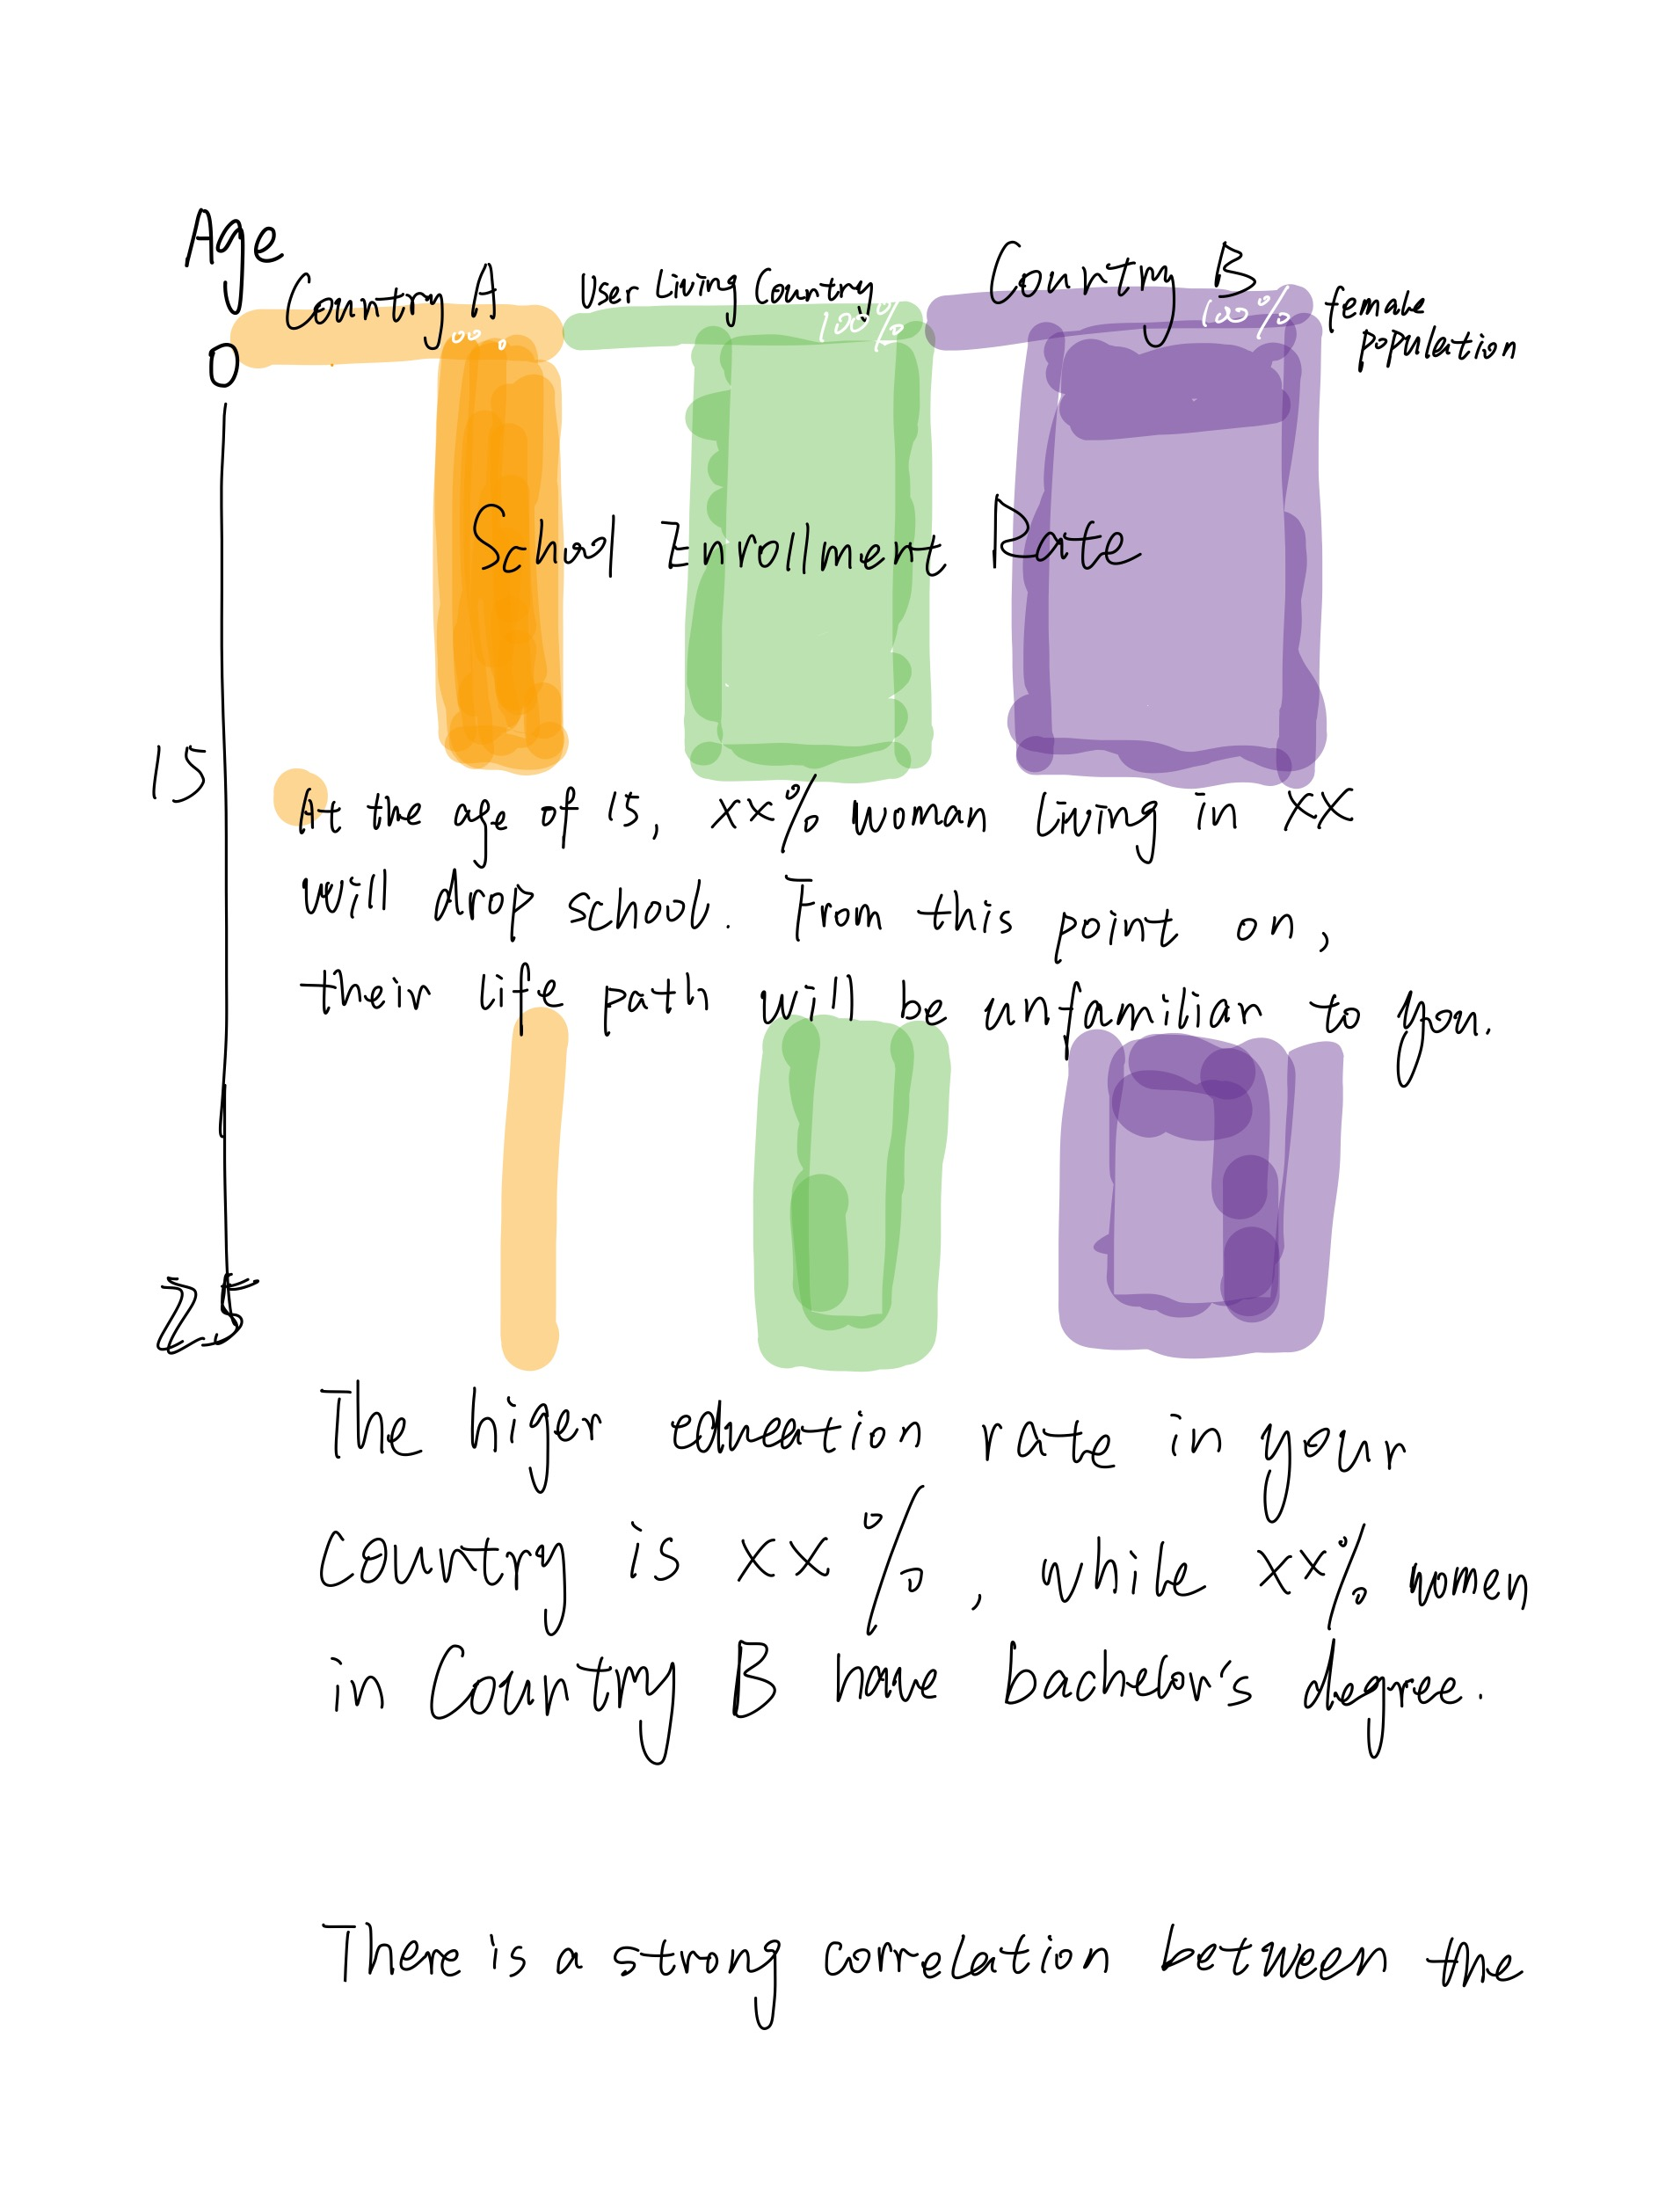 Age
Country A
User Living Country
Country B
female
population
0
100%
100%
School Enrollment Rate
15
At the age of 15, xx% woman living in XX
will drop school. From this point on,
their life path will be unfamiliar to you.
25
The higer education rate in your
country is xx%, while xx% women
in Country B have bachelor's degree.
There is a strong correlation between the